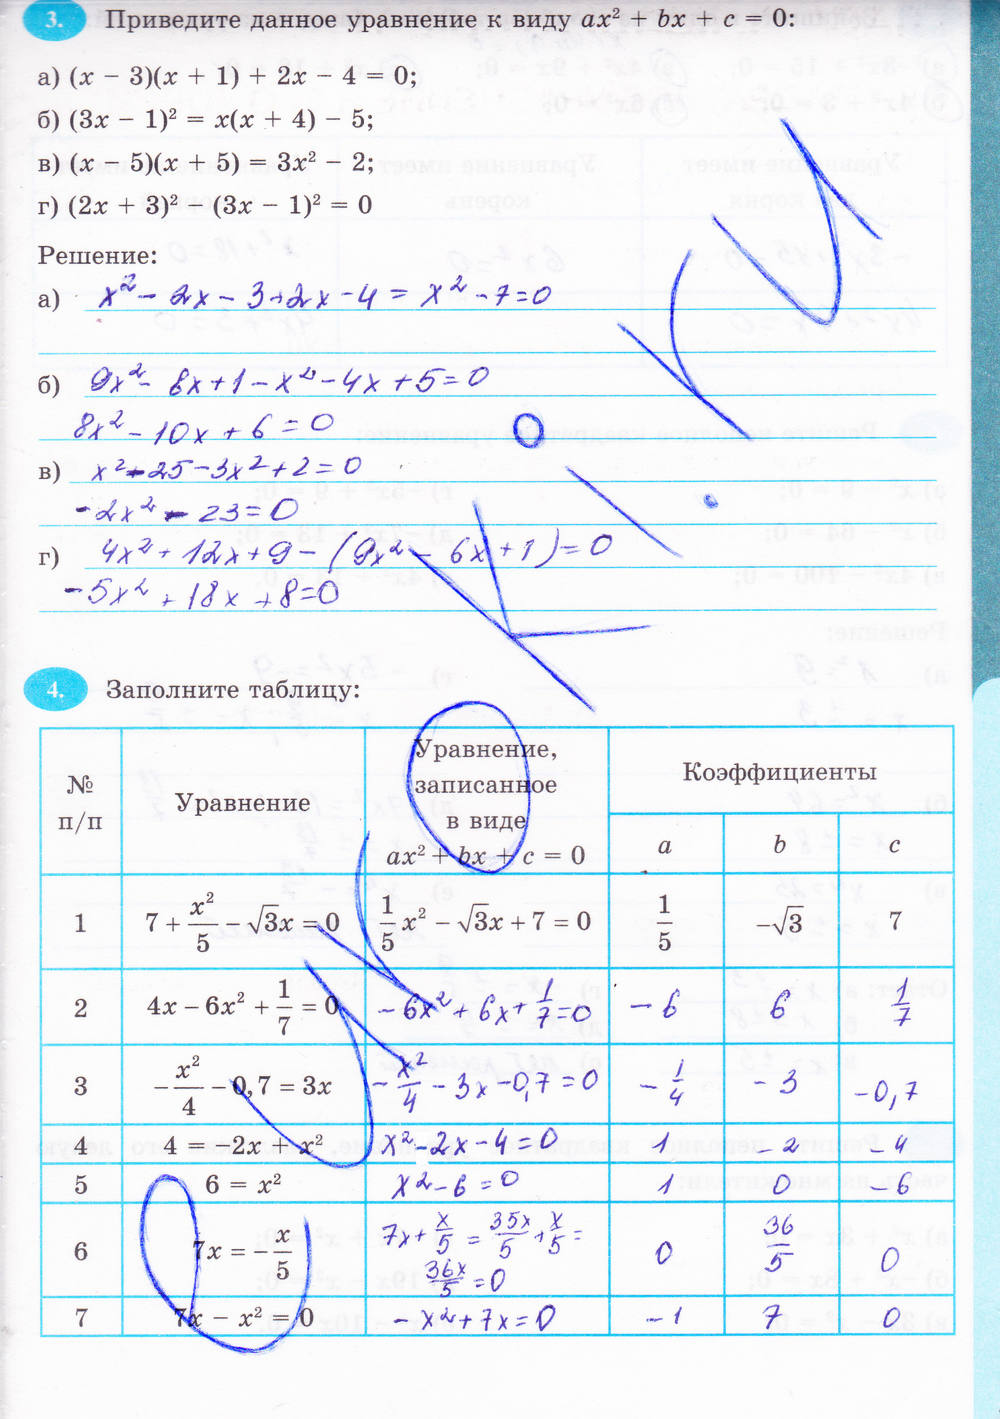 3. Приведите данное уравнение к виду ax² + bx + c = 0:
а) (x − 3)(x + 1) + 2x − 4 = 0;
б) (3x − 1)² = x(x + 4) − 5;
в) (x − 5)(x + 5) = 3x² − 2;
г) (2x + 3)² − (3x − 1)² = 0
Решение:
а) x² − 2x − 3 + 2x − 4 = x² − 7 = 0
б) 9x² − 6x + 1 − x² − 4x + 5 = 0
8x² − 10x + 6 = 0
в) x² − 25 − 3x² + 2 = 0
−2x² − 23 = 0
г) 4x² + 12x + 9 − (9x² − 6x + 1) = 0
−5x² + 18x + 8 = 0
4. Заполните таблицу:
№ п/п Уравнение Уравнение, записанное в виде ax² + bx + c = 0 Коэффициенты
a b c
1 7 + x²/5 − √3x = 0 1/5 x² − √3x + 7 = 0 1/5 −√3 7
2 4x − 6x² + 1/7 = 0 −6x² + 6x + 1/7 = 0 −6 6 1/7
3 −x²/4 − 0,7 = 3x −x²/4 − 3x − 0,7 = 0 −1/4 −3 −0,7
4 4 = −2x + x² x² − 2x − 4 = 0 1 −2 −4
5 6 = x² x² − 6 = 0 1 0 −6
6 7x = −x/5 7x + x/5 = 35x/5 + x/5 = 36x/5 = 0 0 36/5 0
7 7x − x² = 0 −x² + 7x = 0 −1 7 0